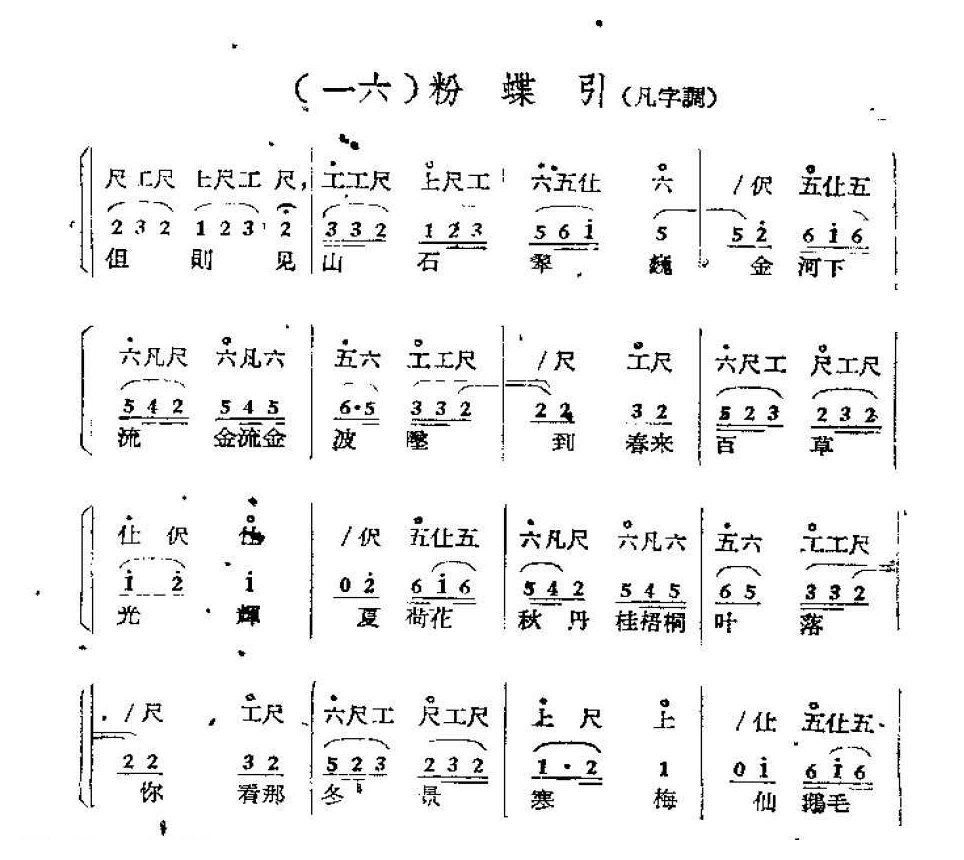 （一六）粉 蝶 引（凡字調）
尺工尺 上尺工 尺， 工工尺 上尺工 六五仩 六 /伬 五仩五
2 3 2 1 2 3 2 3 3 2 1 2 3 5 6 i 5 5 2 6 i 6
但 則 见 山 石 翠 巍 金 河下
六凡尺 六凡六 五六 工工尺 /尺 工尺 六尺工 尺工尺
5 4 2 5 4 5 6·5 3 3 2 2 2 3 2 5 2 3 2 3 2
流 金流金 波 墜 到 春来 百 草
仩 伬 仩 /伬 五仩五 六凡尺 六凡六 五六 工工尺
i 2 i 0 2 6 i 6 5 4 2 5 4 5 6 5 3 3 2
光 輝 夏 荷花 秋 丹 桂梧桐 叶 落
/尺 工尺 六尺工 尺工尺 上 尺 上 /仩 五仩五
2 2 3 2 5 2 3 2 3 2 1·2 1 0 i 6 i 6
你 看那 冬 景 寒 梅 仙 鵝毛